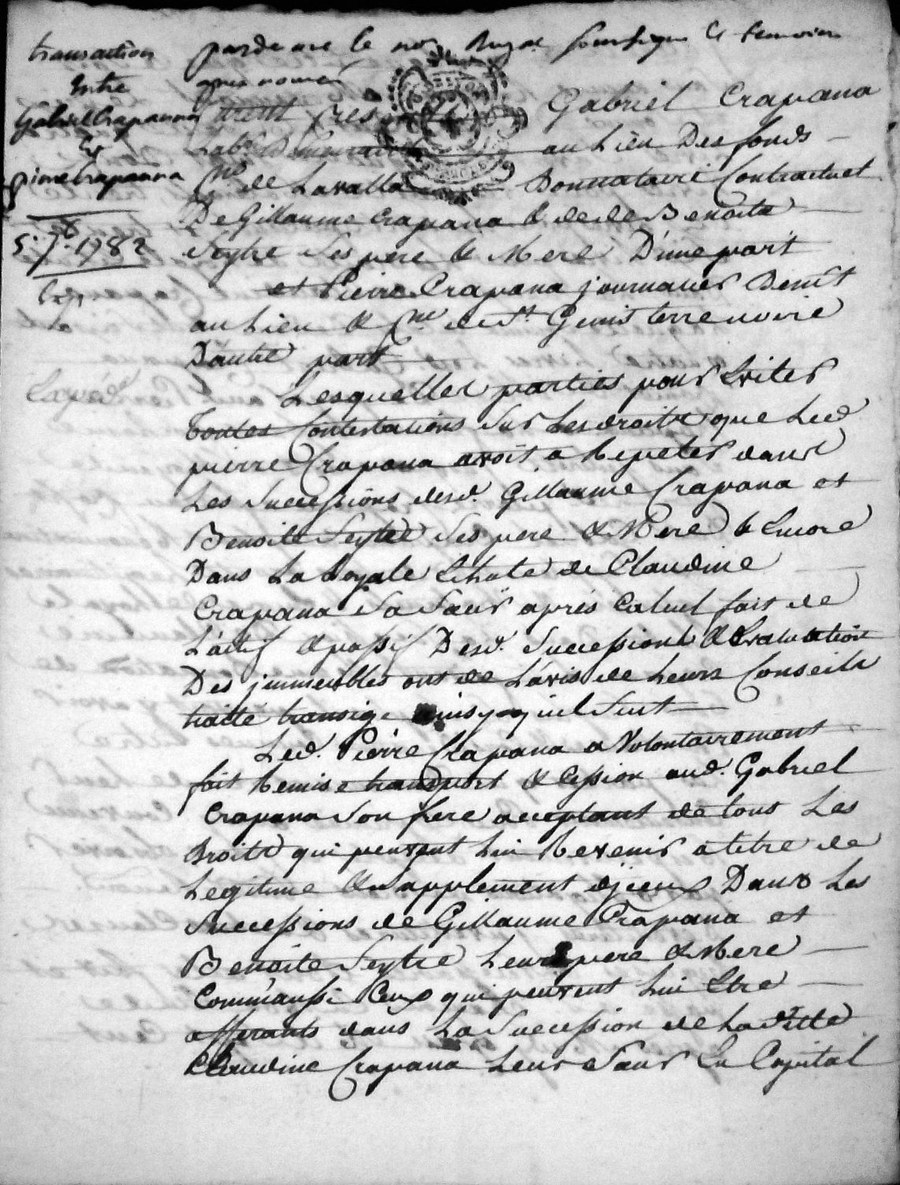 transaction
Entre
Gabriel Crapanna
Et
pierre Crapanna
5. 7bre 1782
Exp
pardevant le no. Royal soussigné Et temoins
apres nommés
furent presents Gabriel Crapana
Lab. Demeurant au Lieu Des fonds
psse de Lavalla Donnataire Contractuel
De Gillaume Crapana & de de Benoite
Seytre Ses pere & Mere D'une part
et Pierre Crapana journalier Demt
au Lieu & psse de St Genis terre noire
D'autre part
Lesquelles parties pour Eviter
toutes Contestations Sur Les droits que Led
pierre Crapana avoit a Repeter dans
Les Successions desd. Gillaume Crapana et
Benoite Seytre Ses pere & Mere & Encore
Dans La de Claudine
Crapana Sa Sœur après Calcul fait de
L'actif & passif Desd. Successions & Evaluation
Des jmmeubles ont de L'avis de Leurs Conseils
traité transigé ainsy qu'il Suit
Led. Pierre Crapana a Volontairement
fait Remise transport & Cession aud. Gabriel
Crapana Son frere acceptant de tous Les
Droits qui peuvent Lui Revenir a titre de
Legitime & Supplement d'jcelle Dans Les
Successions de Gillaume Crapana et
Benoite Seytre Leurs pere & Mere
Comm'aussi Ceux qui peuvent Lui Etre
afferants dans La Succession de Laditte
Claudine Crapana Leur Sœur En Capital